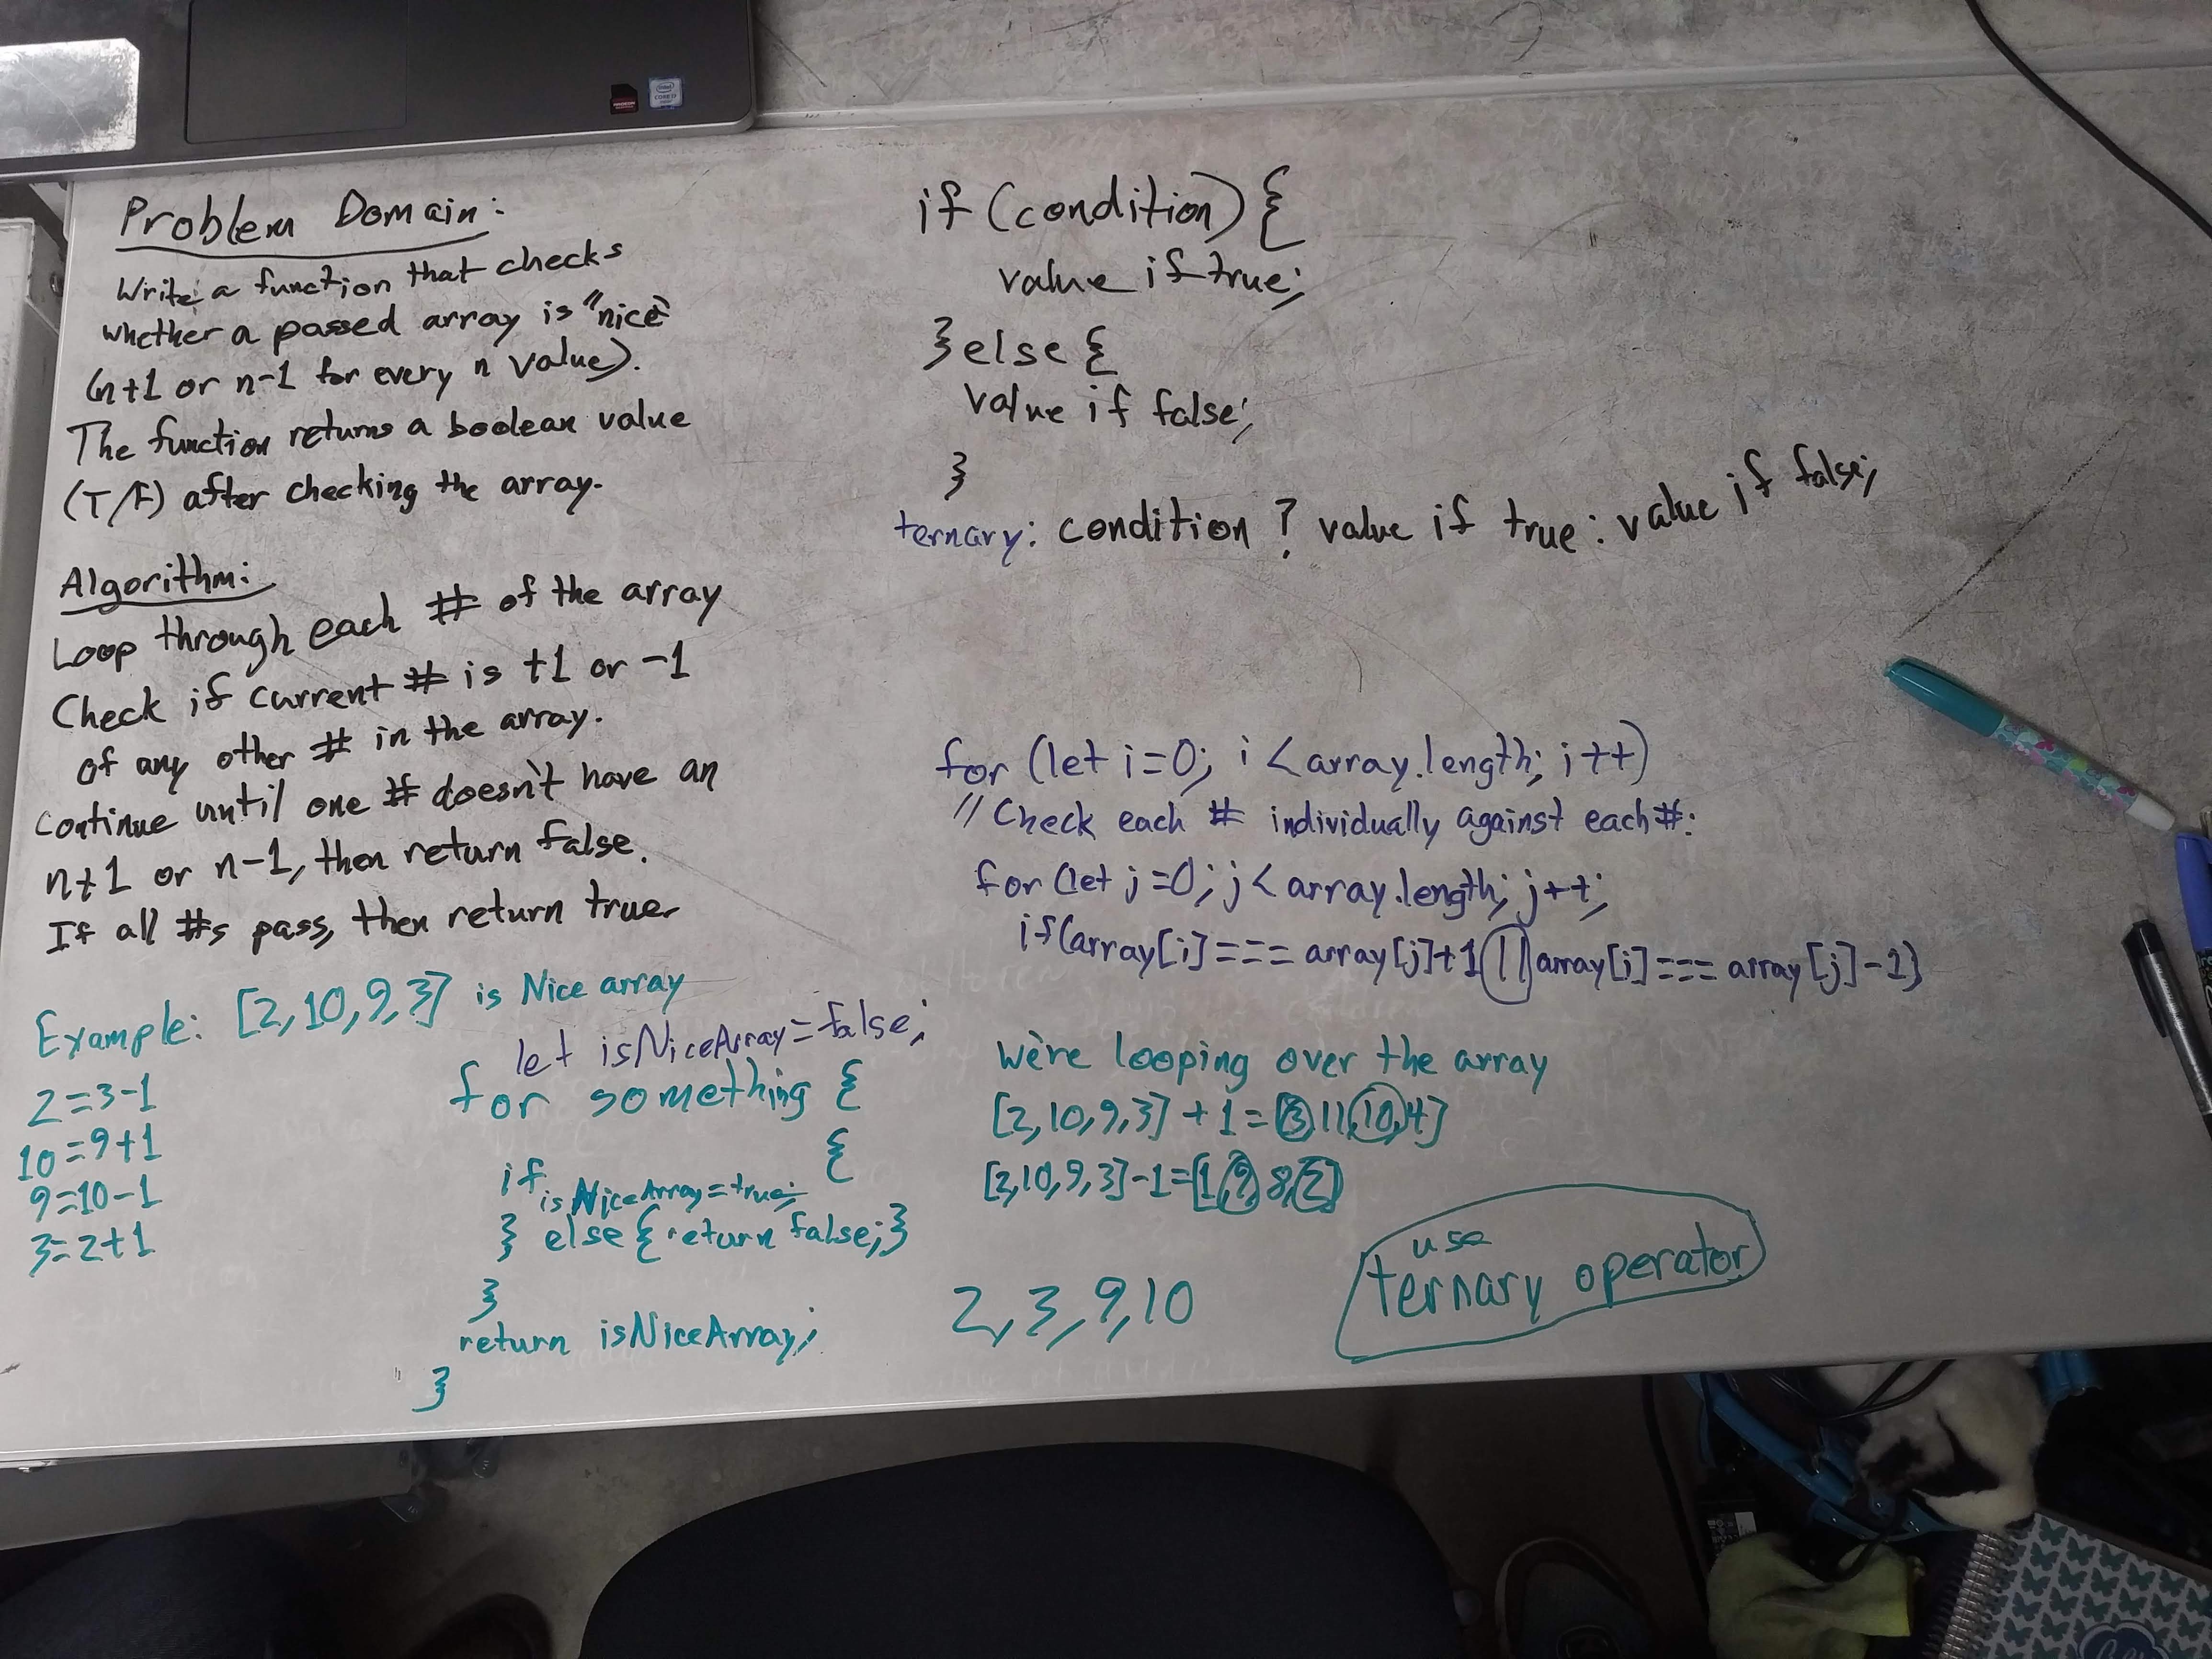 Problem Domain:
Write a function that checks
whether a passed array is "nice"
(n+1 or n-1 for every n value).
The function returns a boolean value
(T/F) after checking the array.
Algorithm:
Loop through each # of the array
Check if current # is +1 or -1
of any other # in the array.
Continue until one # doesn't have an
n+1 or n-1, then return false.
If all #s pass, then return true.
Example: [2,10,9,3] is Nice array
2=3-1
10=9+1
9=10-1
3=2+1
let isNiceArray=false;
for something {
if {
isNiceArray=true;
} else {return false;}
}
return isNiceArray;
}
if (condition) {
value if true;
} else {
value if false;
}
ternary: condition ? value if true : value if false;
for (let i=0; i < array.length; i++)
// Check each # individually against each #:
for (let j=0; j < array.length; j++;
if(array[i] === array[j]+1 || array[i] === array[j]-1)
We're looping over the array
[2,10,9,3] + 1 = [3,11,10,4]
[2,10,9,3]-1=[1,9,8,2]
2,3,9,10
use
ternary operator
RADEON
intel
CORE i7